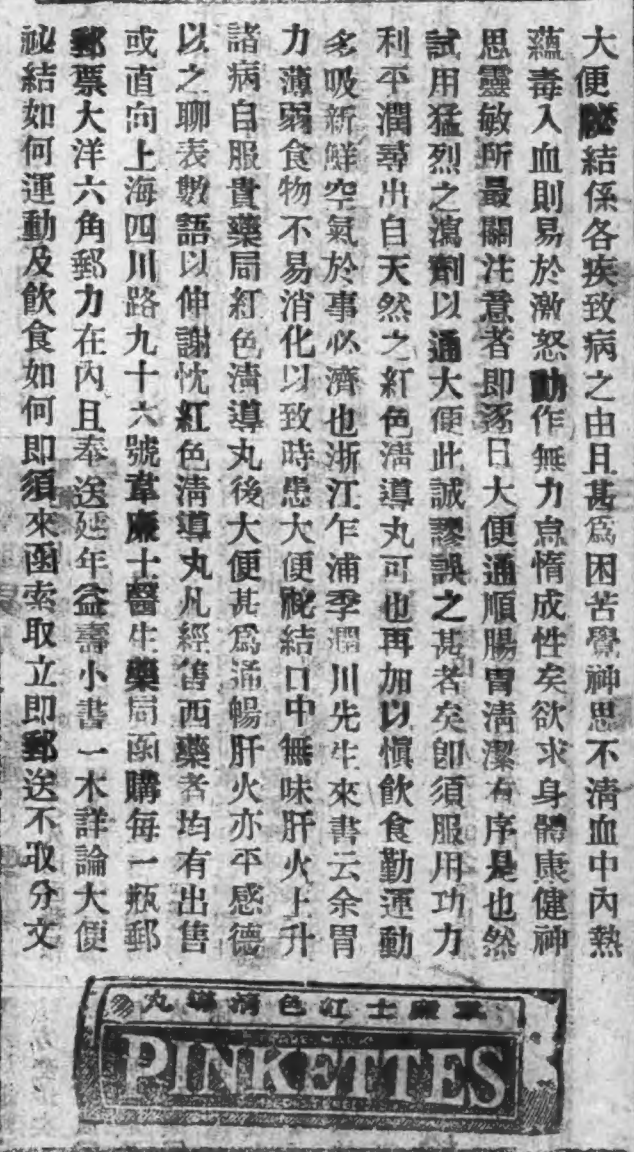 大便秘結係各疾致病之由且甚爲困苦覺神思不清血中內熱
蘊毒入血則易於激怒動作無力怠惰成性矣欲求身體康健神
思靈敏所最關注意者即逐日大便通順腸胃清潔有序是也然
試用猛烈之瀉劑以通大便此誠謬誤之甚者矣卽須服用功力
利平潤尋出自天然之紅色淸導丸可也再加以愼飮食勤運動
多吸新鮮空氣於事必濟也浙江乍浦季潤川先生來書云余胃
力薄弱食物不易消化以致時患大便秘結口中無味肝火上升
諸病自服貴藥局紅色淸導丸後大便甚爲通暢肝火亦平感德
以之聊表數語以伸謝忱紅色淸導丸凡經售西藥者均有出售
或直向上海四川路九十六號韋廉士醫生藥局函購每一瓶郵
郵票大洋六角郵力在內且奉送延年益壽小書一本詳論大便
秘結如何運動及飮食如何即須來函索取立即郵送不取分文
韋廉士紅色淸導丸
PINKETTES